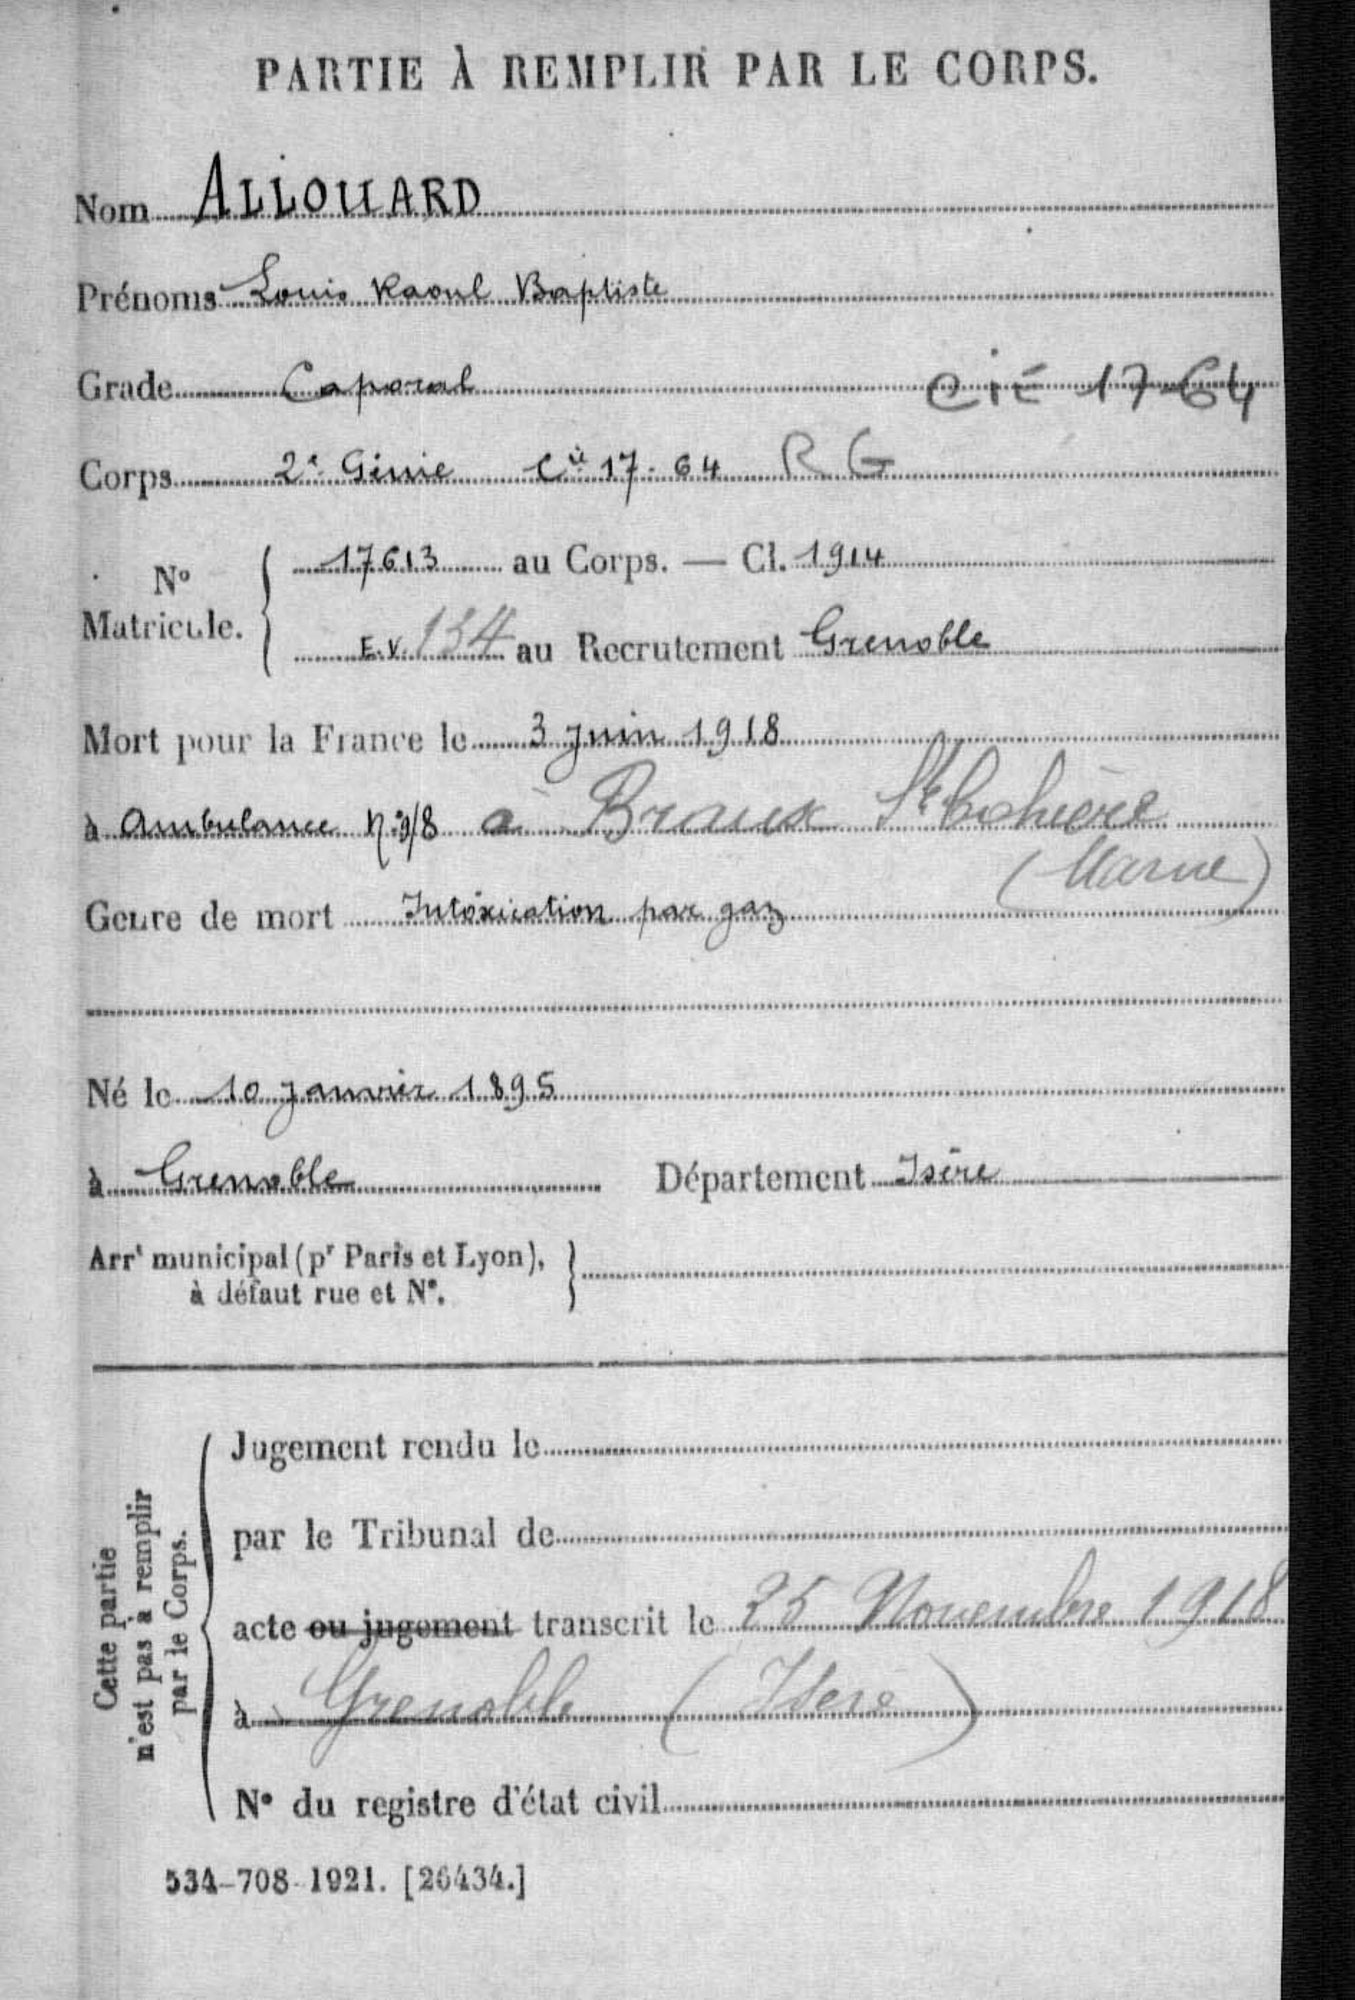 PARTIE À REMPLIR PAR LE CORPS.
Nom ALLOUARD
Prénoms Louis Raoul Baptiste
Grade Caporal Cie 17-64
Corps 2e Génie Cie 17-64 R G
No Matricule. 17613 au Corps. — Cl. 1914
E.V. 134 au Recrutement Grenoble
Mort pour la France le 3 juin 1918
à Ambulance n° 9/8 à Braux Ste Cohière
(Marne)
Genre de mort Intoxication par gaz
Né le 10 janvier 1895
à Grenoble Département Isère
Arrt municipal (pr Paris et Lyon),
à défaut rue et No.
Cette partie
n'est pas à remplir
par le Corps.
Jugement rendu le
par le Tribunal de
acte ou jugement transcrit le 25 Novembre 1918
à Grenoble (Isère)
No du registre d'état civil
534-708-1921. [26434.]